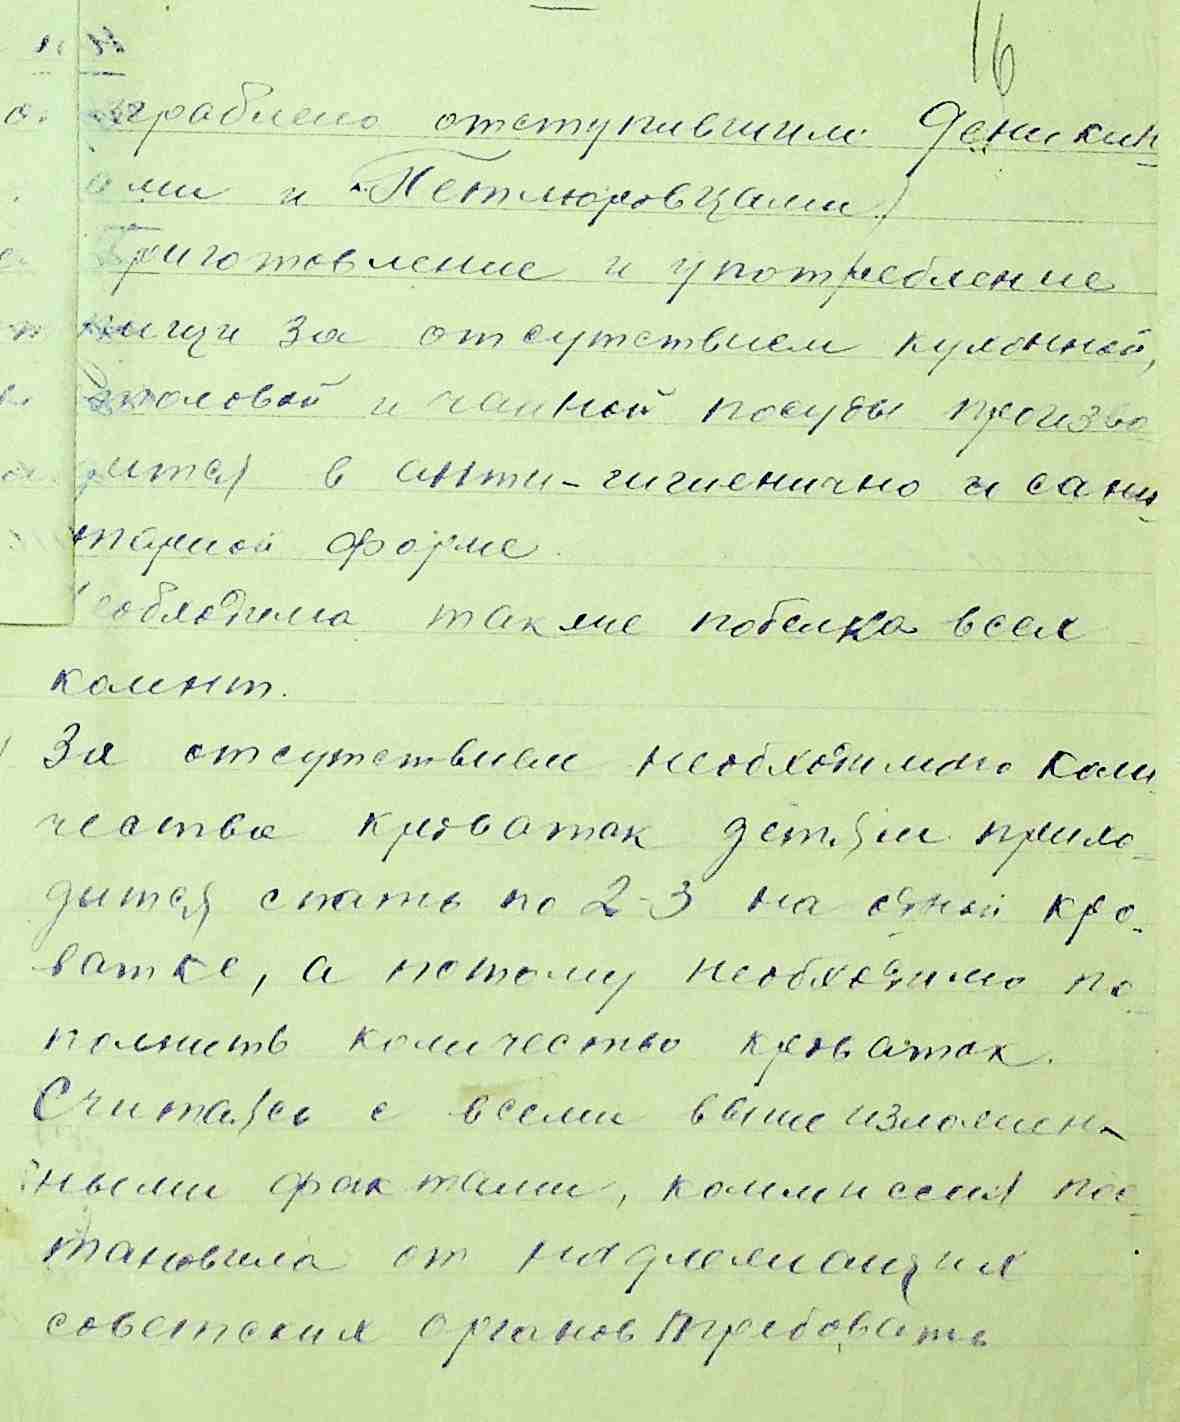 16
ограблено отступившими Деникин-
ами и Петлюровцами)
Приготовление и употребление
пищи за отсутствием кухонной,
столовой и чайной посуды произво
дится в анти-гигиенично и сани-
тарной форме.
Необходима также побелка всех
комнт.
За отсутствием необходимого коли-
чества кроваток детям прихо-
дится спать по 2-3 на одной кро-
ватке, а потому необходимо по-
полнить количество кроваток.
Считаясь с всеми выше изложен-
ными фактами, коммиссия пос-
тановила от надлежащих
советских органов требовать